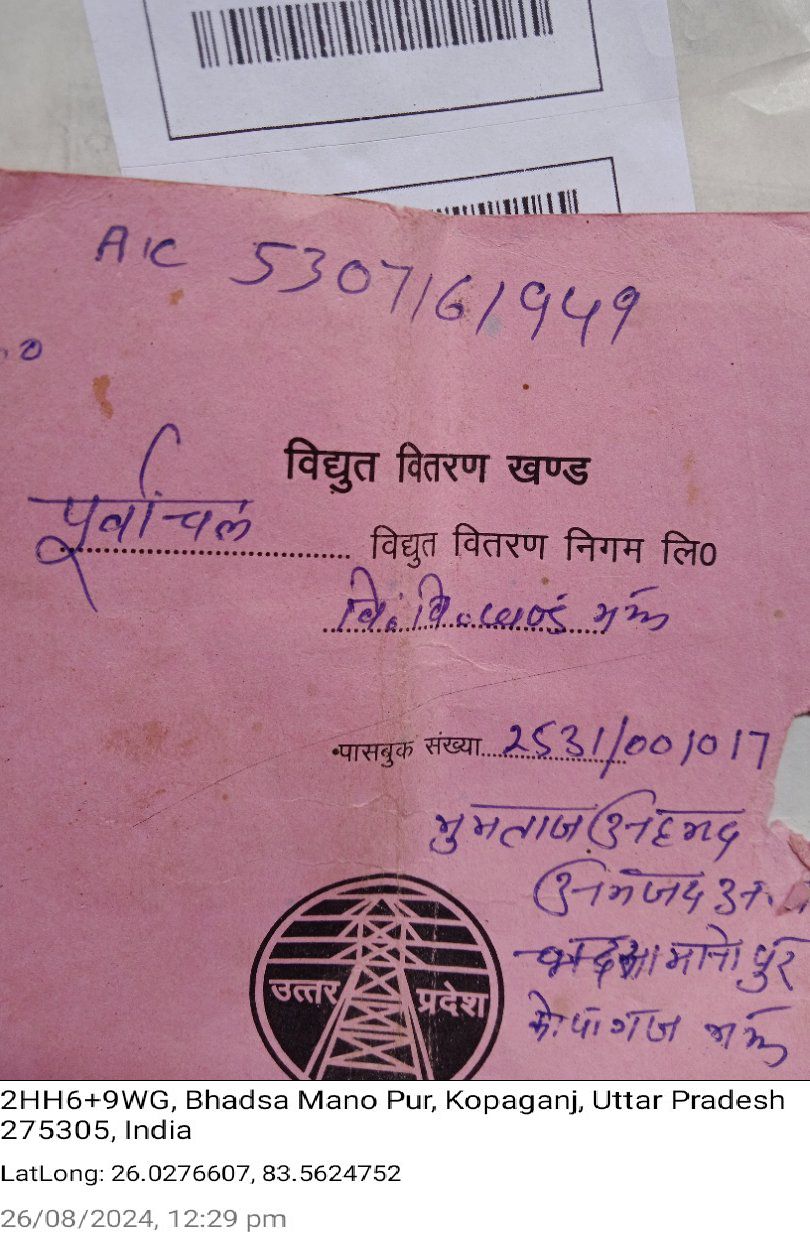 A/C 5307161949
विद्युत वितरण खण्ड
पूर्वांचल विद्युत वितरण निगम लि०
वि. वि. खण्ड मऊ
पासबुक संख्या 2531/001017
मुमताज अहमद
अमजद
भदसा मानोपुर
कोपागंज मऊ
उत्तर प्रदेश
2HH6+9WG, Bhadsa Mano Pur, Kopaganj, Uttar Pradesh
275305, India
LatLong: 26.0276607, 83.5624752
26/08/2024, 12:29 pm